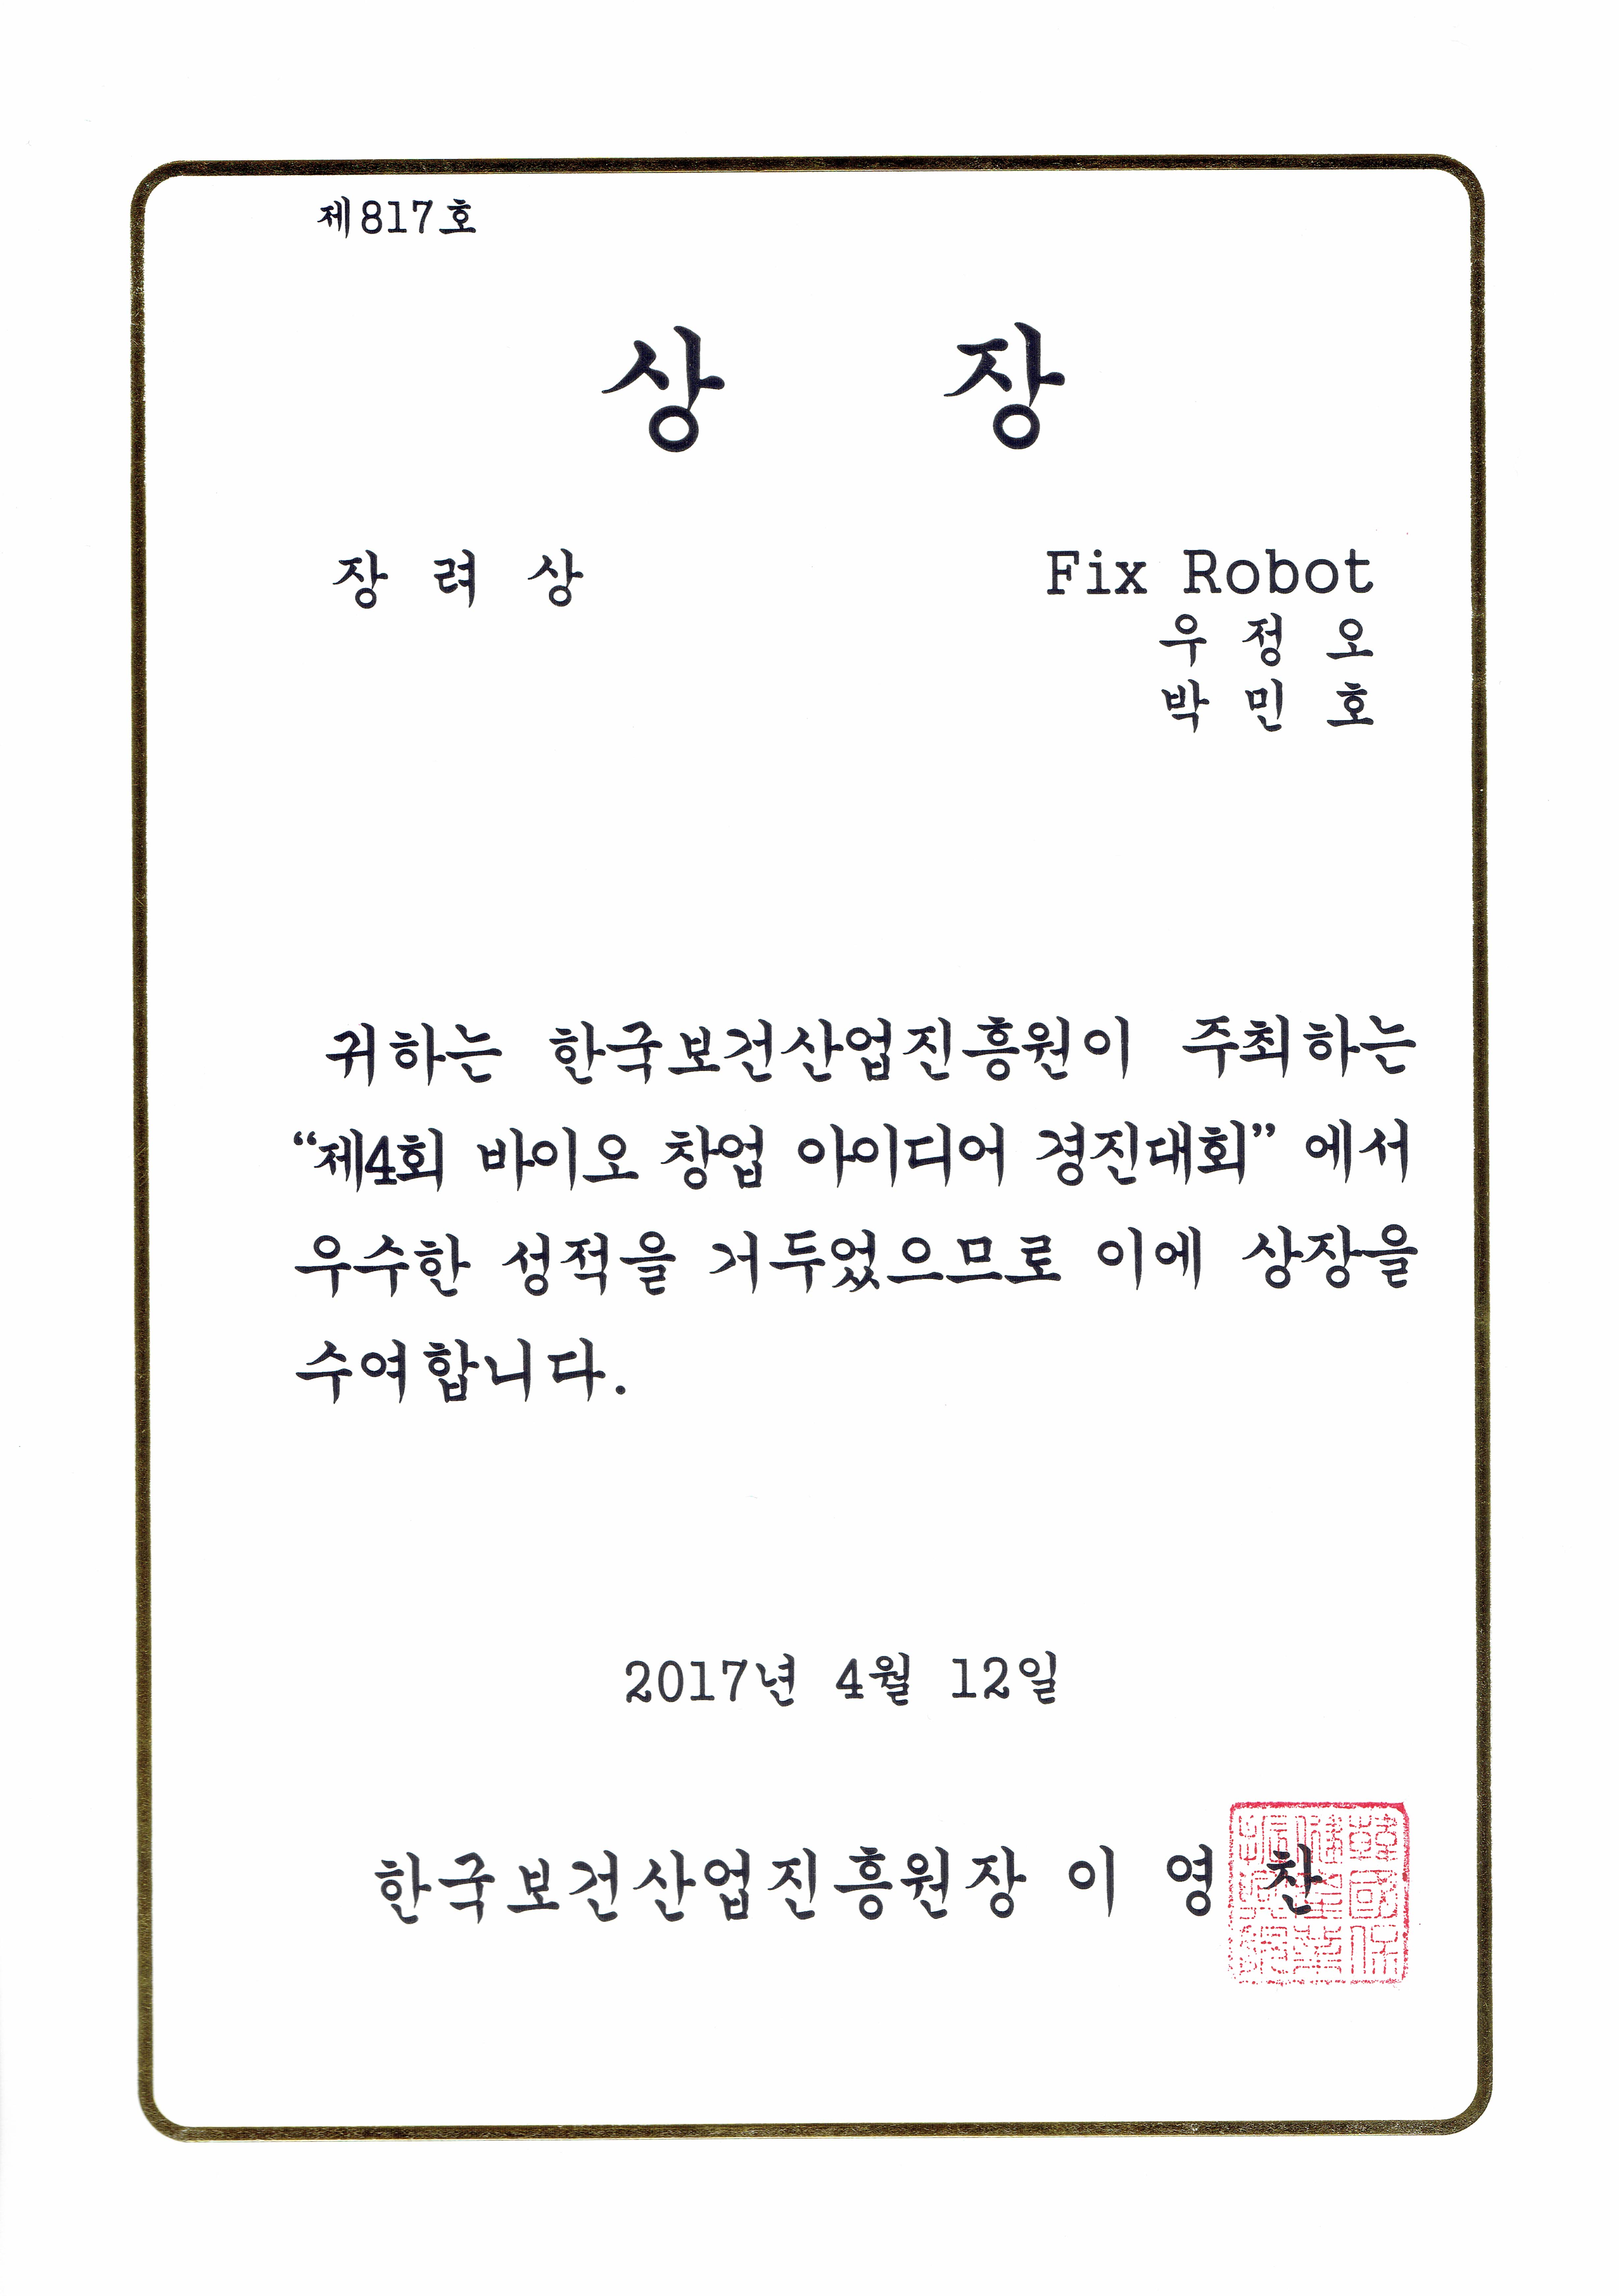 제817호
상 장
장 려 상
Fix Robot
우 정 오
박 민 호
귀하는 한국보건산업진흥원이 주최하는
“제4회 바이오 창업 아이디어 경진대회” 에서
우수한 성적을 거두었으므로 이에 상장을
수여합니다.
2017년 4월 12일
한국보건산업진흥원장 이 영 찬
韓國保
健産業